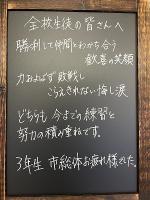 全校生徒の皆さんへ
勝利して仲間とわかち合う
歓喜の笑顔
力およばず敗戦し
こらえきれない悔し涙
どちらも今までの練習と
努力の積み重ねです。
3年生 市総体お疲れ様でした。